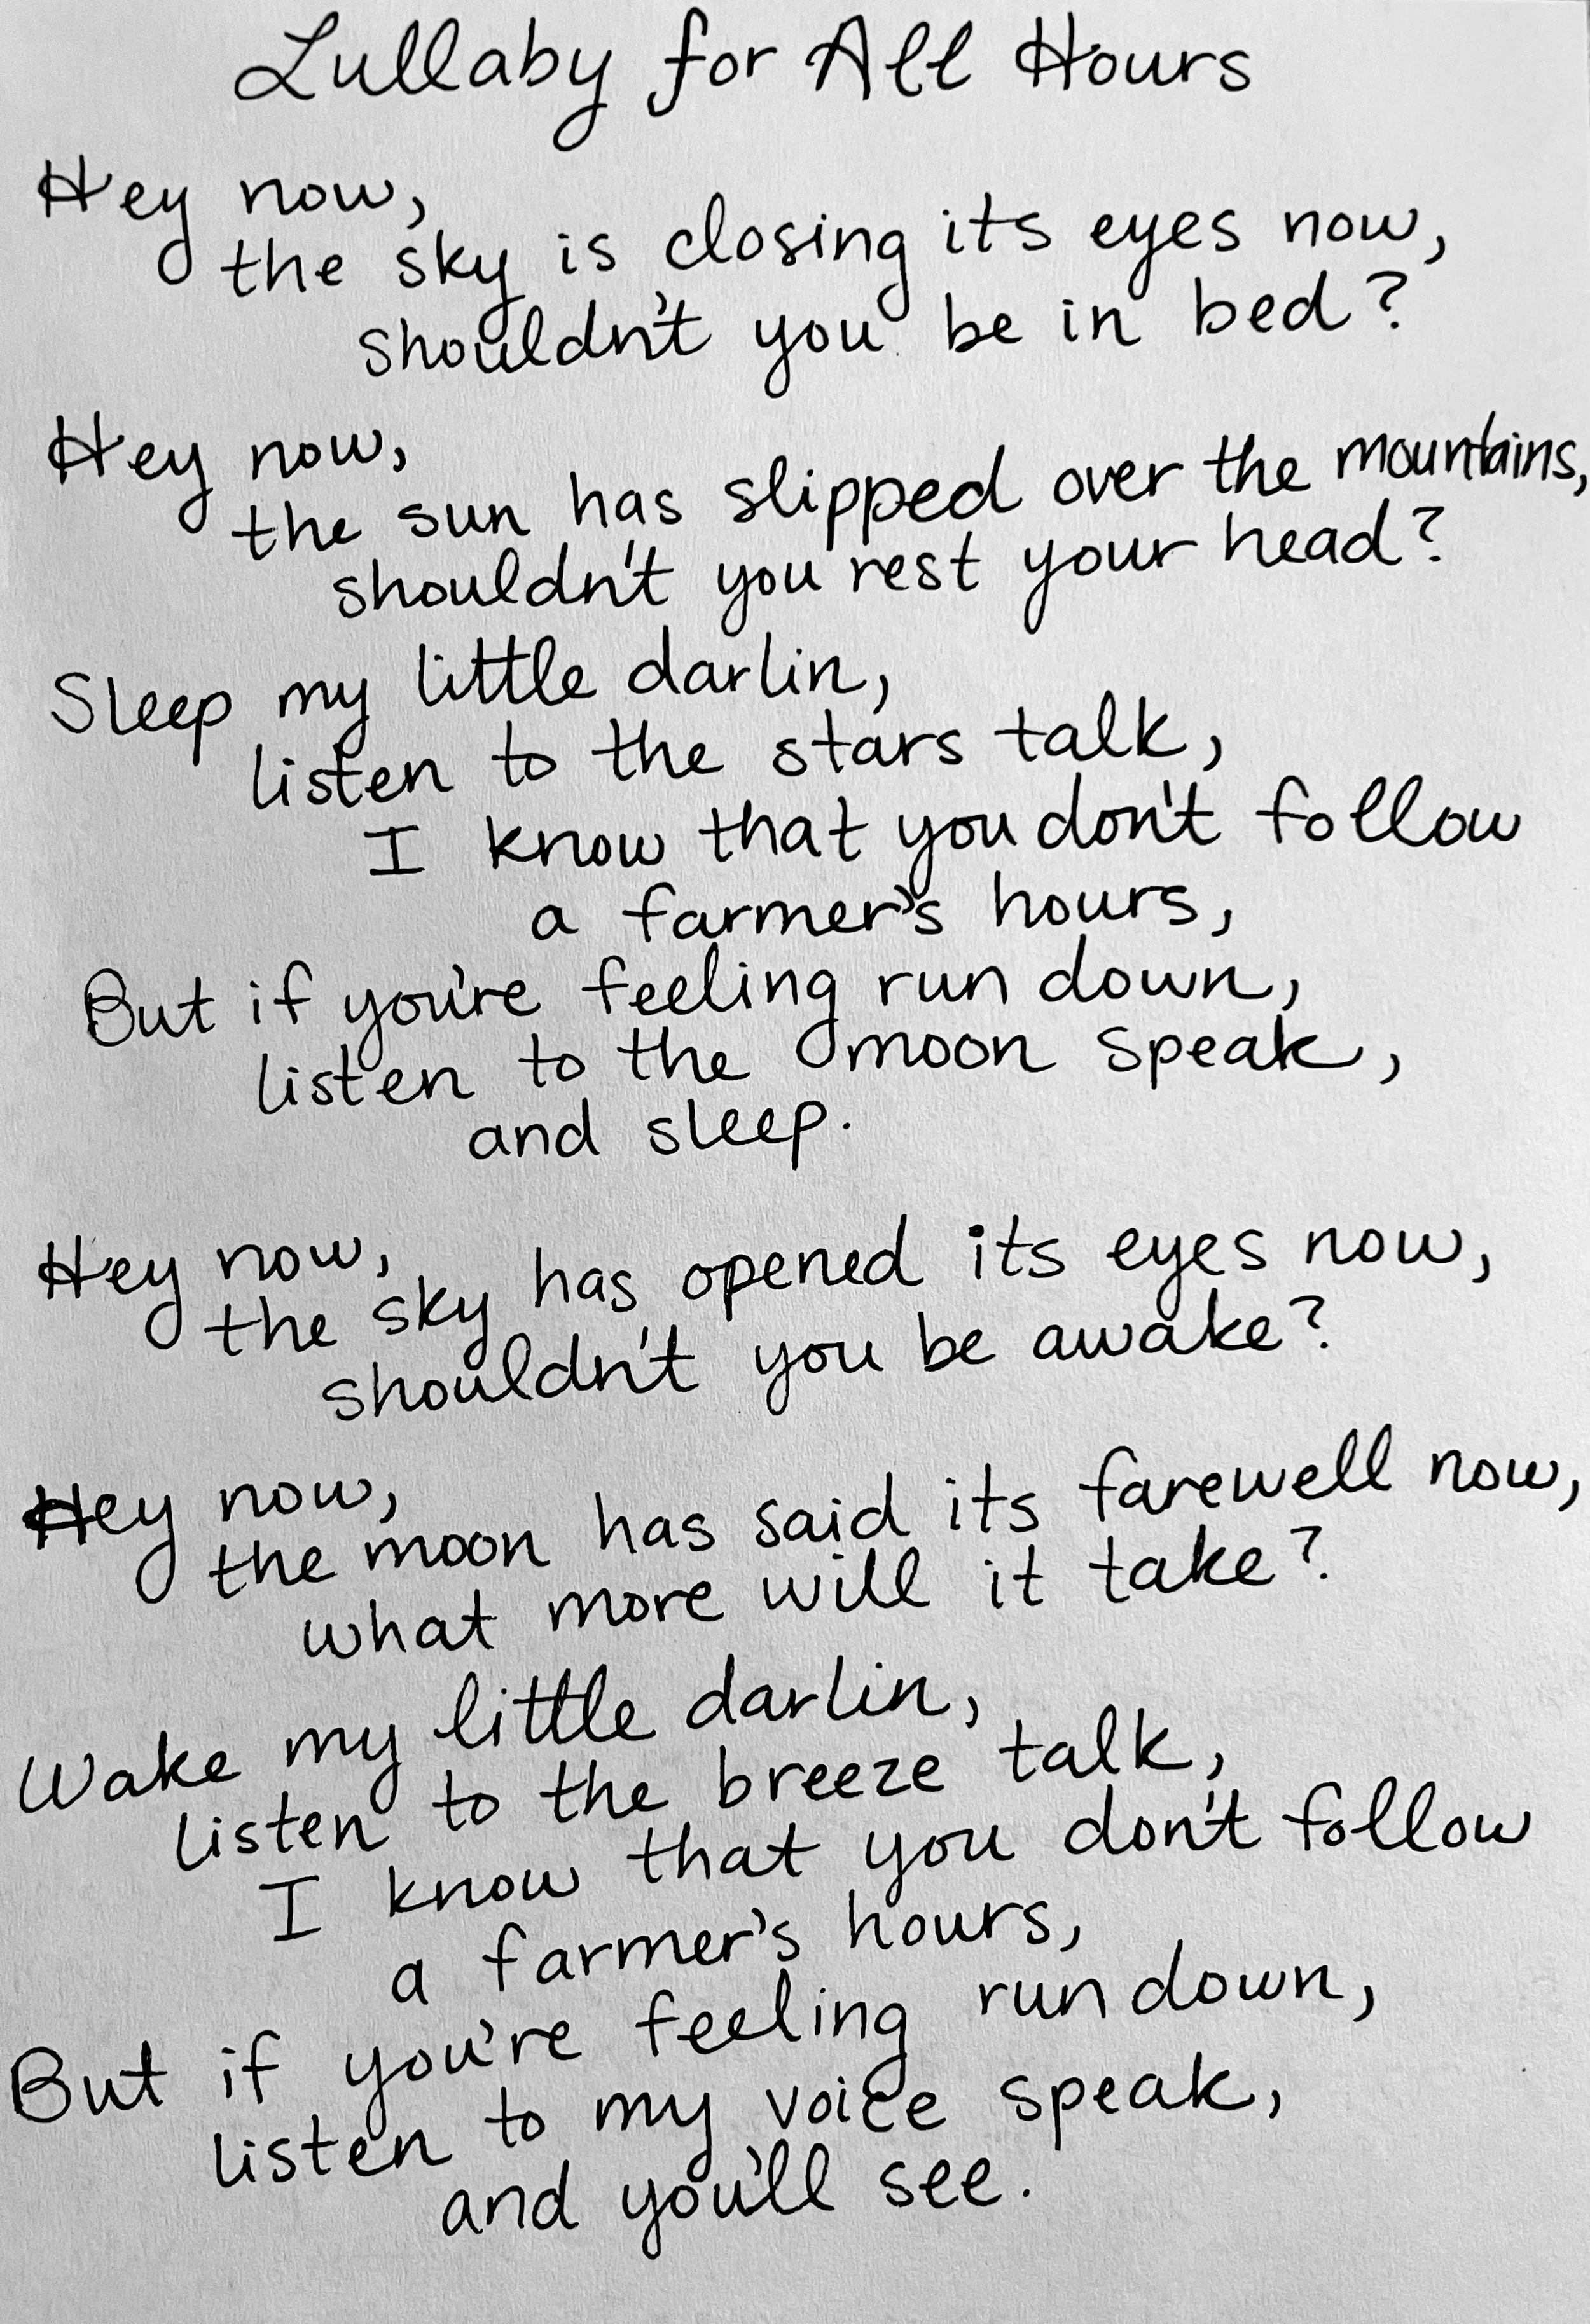 Lullaby for All Hours
Hey now,
the sky is closing its eyes now,
shouldn't you be in bed?
Hey now,
the sun has slipped over the mountains,
shouldn't you rest your head?
Sleep my little darlin,
listen to the stars talk,
I know that you don't follow
a farmer's hours,
But if you're feeling run down,
listen to the moon speak,
and sleep.
Hey now,
the sky has opened its eyes now,
shouldn't you be awake?
Hey now,
the moon has said its farewell now,
what more will it take?
Wake my little darlin,
listen to the breeze talk,
I know that you don't follow
a farmer's hours,
But if you're feeling run down,
listen to my voice speak,
and you'll see.